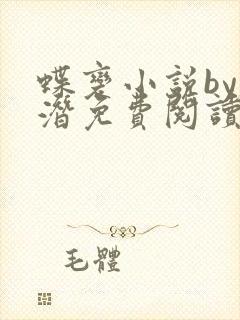 蝶変小説by
潛免費閱讀
毛體